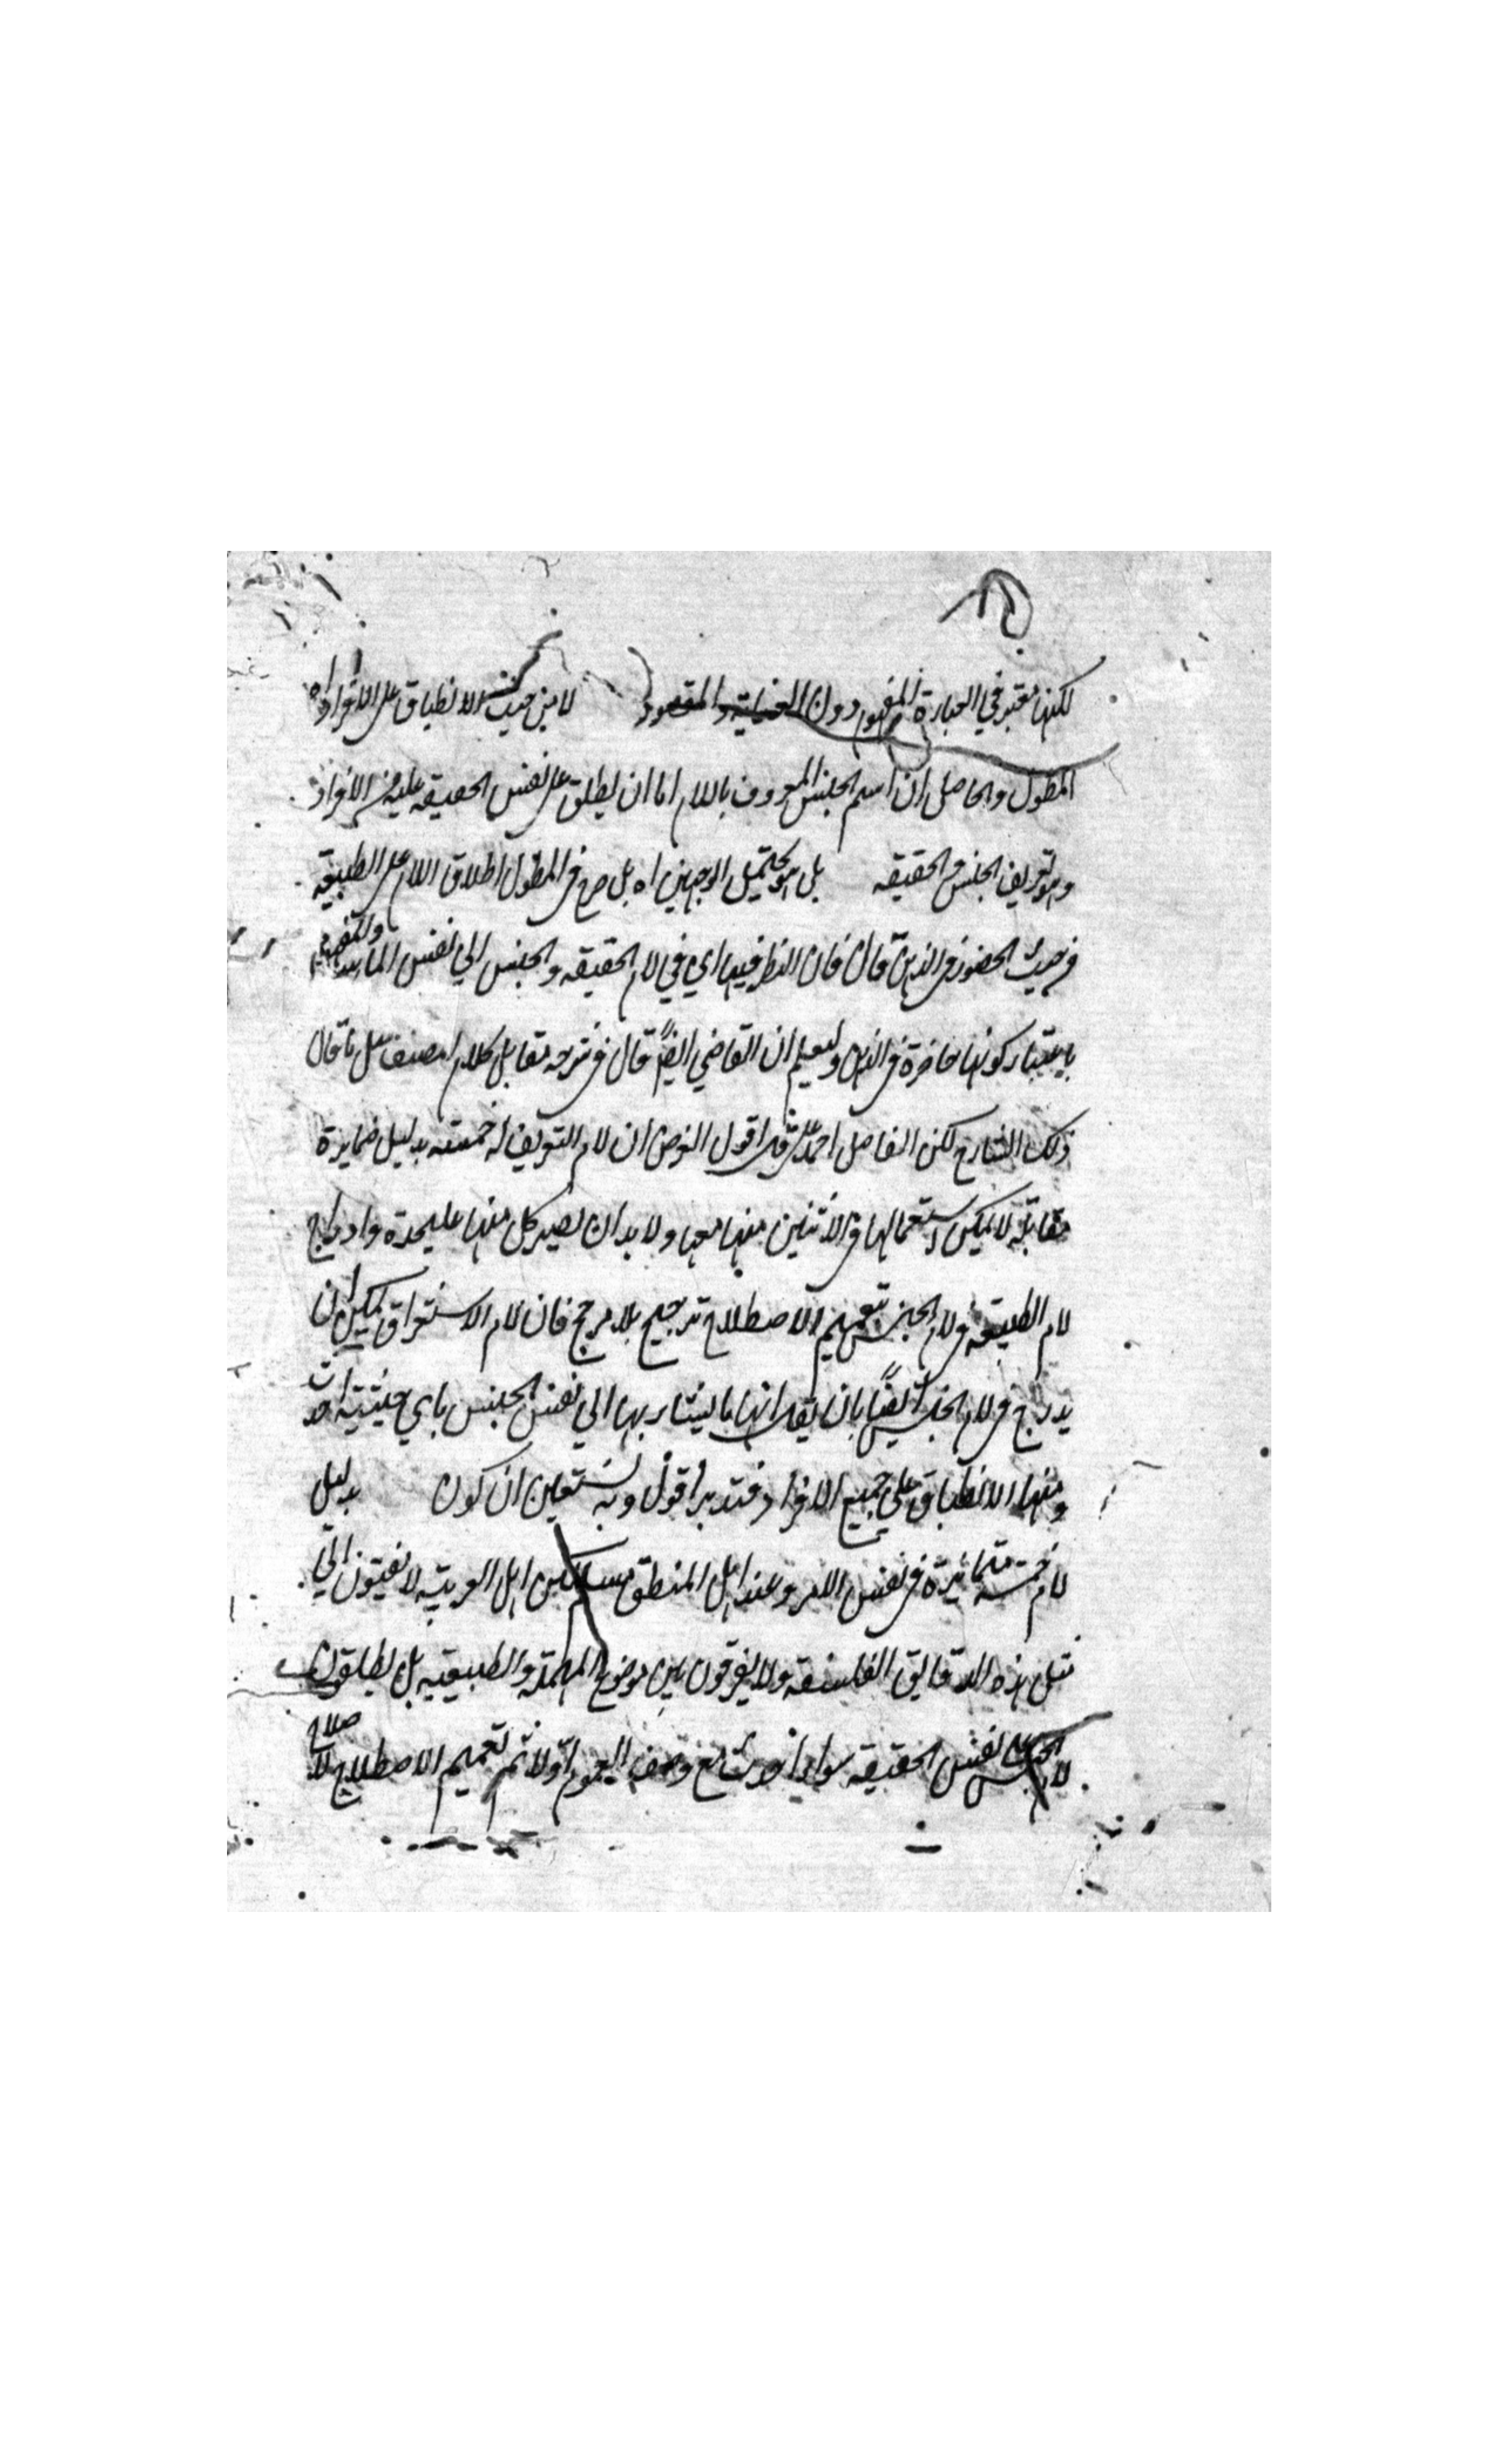 لكنها معتبر في العبارة المفهوم دون العناية والمقصود لا من حيث الانطباق على الافراد اه
المطول والحاصل ان اسم الجنس المعروف باللام اما ان يطلق على نفس الحقيقه عليه من الافراد
وهو تعريف الجنس والحقيقه بل هو يحتمل الوجهين اه بل صرح في المطول اطلاق اللام على الطبيعه
من حيث الحضور في الذهن قال فان النظر فيها اي في لام الحقيقه والجنس الي نفس الماهية
باعتبار كونها حاضرة في الذهن وليعلم ان القاضي ايضا قال في شرحه مقابل كلام المصنف مثل ما قال
ذلك الشارح لكن الفاضل احمد اقول الغرض ان لام التعريف له خمسته بدليل ضمايرة
مقابله لا يمكن استعمالها والاثنين منها معها ولا بد ان يصير كل منها عليحدة وادراج
لام الطبيعه في لام الجنس بتعميم الاصطلاح ترجيح بلا مرجح فان لام الاستغراق يمكن ان
يدرج في لام الجنس ايضا بان يقال انها ما يشار بها الي نفس الجنس باي حيثية اخذت
ومنها الانطباق علي جميع الافراد فتدبر اقول وبه نستعين ان كون بدليل
لام خمسته متمائزة في نفس الامر وعند اهل المنطق مسلم لكن اهل العربيه لا يفتون الي
مثل هذه الدقايق الفلسفه ولا يفرقون بين موضوع المهملة والطبيعيه بل يطلقون
لام الجنس على نفس الحقيقه سواء اخذت مع وصف العموم اولا ثم تعميم الاصطلاح لا